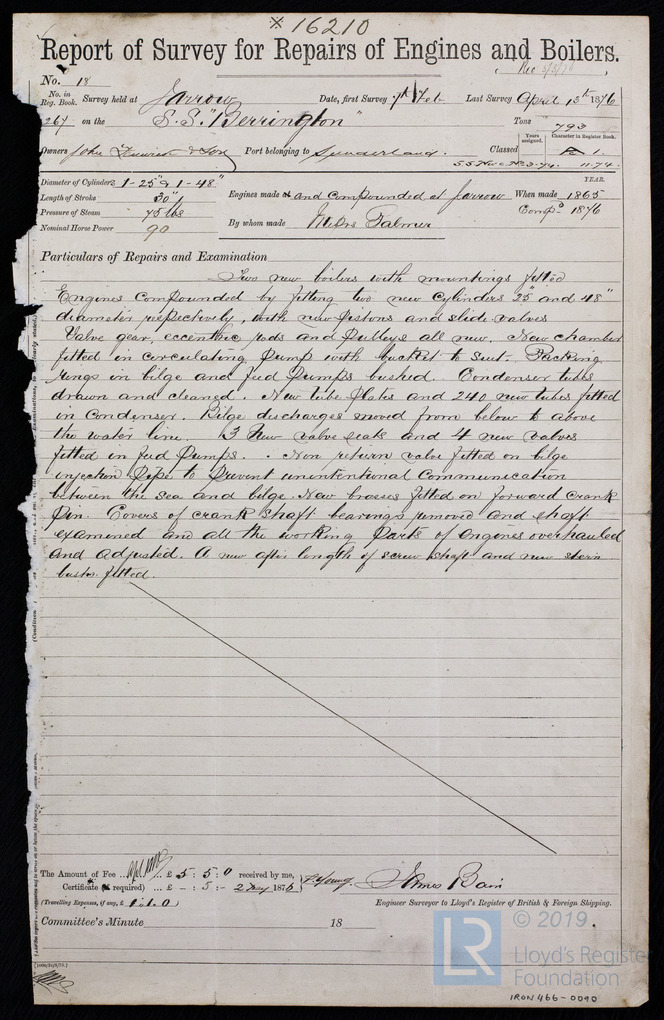 * 16210
Report of Survey for Repairs of Engines and Boilers.
No. 18
No. in Reg. Book. Survey held at Jarrow Date, first Survey 7th Feb Last Survey April 13th 1876
267 on the S.S. "Berrington" Tons 793
Years assigned. Character in Register Book.
Owners John & Son Port belonging to Sunderland. Classed A 1
11.74.
Diameter of Cylinders 1-25" & 1-48" YEAR.
Length of Stroke 30" Engines made and compounded at Jarrow When made 1865
Pressure of Steam 75 lbs Compd 1876
Nominal Horse Power 90 By whom made Messrs Palmer
Particulars of Repairs and Examination
Two new boilers with mountings fitted
Engines compounded by fitting two new cylinders 25" and 48"
diameter respectively, with new pistons and slide valves
Valve gear, eccentric rods and pulleys all new. New chamber
fitted in circulating pump with bucket to suit. Packing
rings in bilge and feed pumps bushed. Condenser tubes
drawn and cleaned. New tube plates and 240 new tubes fitted
in condenser. Bilge discharges moved from below to above
the water line. 3 New valve seats and 4 new valves
fitted in feed pumps. Non return valve fitted on bilge
injection pipe to prevent unintentional communication
between the sea and bilge. New brasses fitted on forward crank
pin. Covers of crank shaft bearings removed and shaft
examened and all the working parts of engines overhauled
and adjusted. A new after length of screw shaft and new stern
bushes fitted.
The Amount of Fee .. £ 5 : 5 : 0 received by me,
Certificate (if required) ... £ - : 5 : - 2 May 1876 Young James Bain
(Travelling Expenses, if any, £ 1.1.0) Engineer Surveyor to Lloyd's Register of British & Foreign Shipping.
Committee's Minute 18
LR
© 2019
Lloyd's Register
Foundation
IRON466-0090